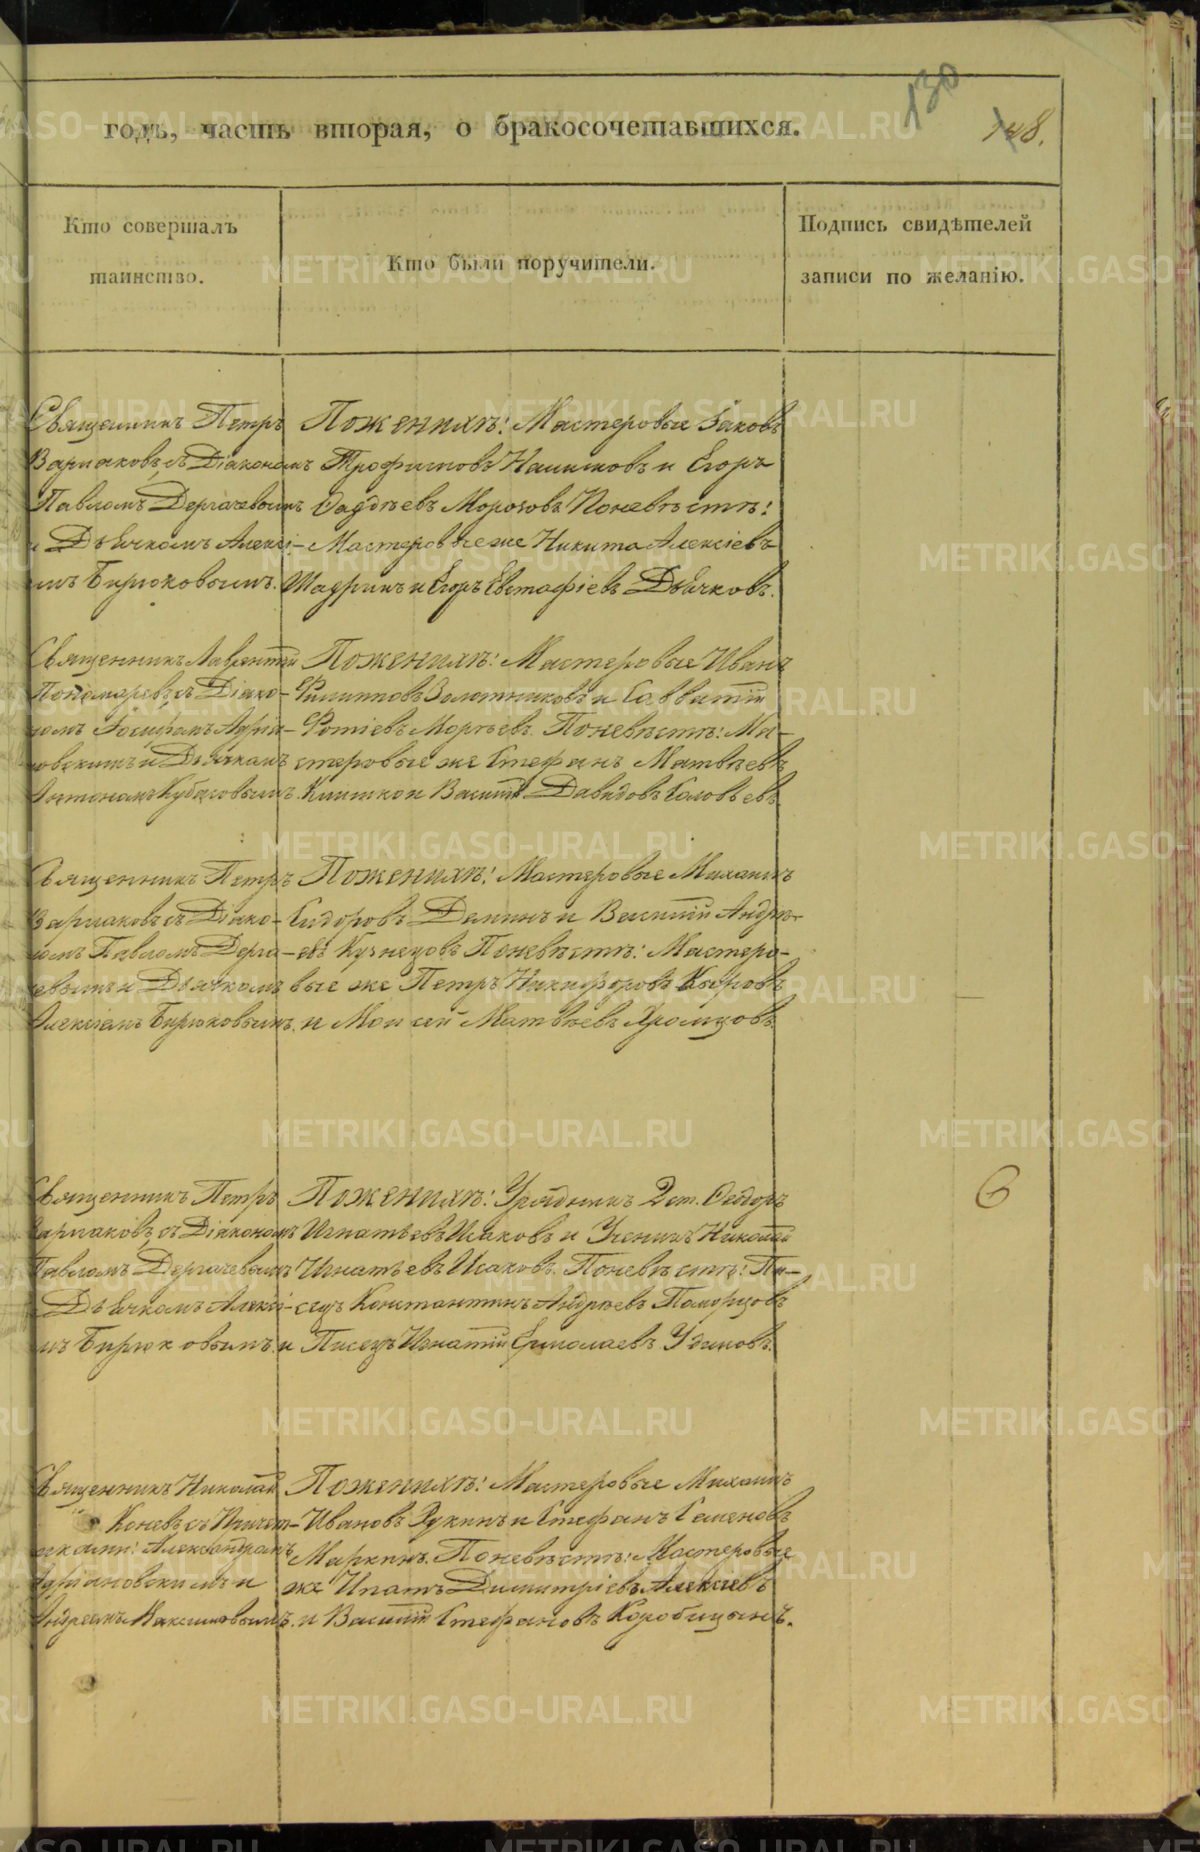 130
148.
годъ, часть вторая, о бракосочетавшихся.
Кто совершалъ
таинство.
Кто были поручители.
Подпись свидѣтелей
записи по желанію.
Священникъ Петръ
Варнаковъ съ Діакономъ
Павломъ Дергачевымъ
и Дьячкомъ Алексі-
мъ Бирюковымъ.
По женихѣ: Мастеровые Іаковъ
Трофимовъ и Егоръ
Фаддѣевъ Морозовъ По невѣстѣ:
Мастеровые же Никита Алексіевъ
Шадринъ и Егоръ Евстафіевъ Дьячковъ.
Священникъ Лаврентій
Пономаревъ съ Діако-
номъ Іосифомъ Адріа-
новскимъ и Дьячкомъ
Антономъ
По женихѣ: Мастеровые Иванъ
Филипповъ Золотниковъ и Савватій
Фотіевъ По невѣстѣ: Ма-
стеровые же Стефанъ Матвѣевъ
и Василій Давидовъ Соловьевъ
Священникъ Петръ
Варнаковъ съ Діако-
номъ Павломъ Дерга-
евымъ и Дьячкомъ
Алексіемъ Бирюковымъ
По женихѣ: Мастеровые Михаилъ
Сидоровъ Деминъ и Василій Андре-
евъ Кузнецовъ По невѣстѣ: Мастеро-
вые же Петръ Никифоровъ
и Моисей Матвѣевъ Хромцовъ
Священникъ Петръ
Варнаковъ съ Діакономъ
Павломъ Дергачевымъ
Дьячкомъ Алексі-
мъ Бирюковымъ
По женихѣ: Урядникъ 2 ст. Феодоръ
Игнатьевъ Исаковъ и Ученикъ Николай
Игнатьевъ Исаковъ. По невѣстѣ: Пи-
сецъ Константинъ Андреевъ Поморцовъ
и Писецъ Игнатій Ермолаевъ
6
Священникъ Николай
Коневъ съ Причет-
никами: Александромъ
Адріановскимъ и
Андреемъ Максимовымъ
По женихѣ: Мастеровые Михаилъ
Ивановъ и Стефанъ Семеновъ
Маркинъ. По невѣстѣ: Мастеровые
же Ипатъ Димитріевъ Алексіевъ
и Василій Стефановъ Коробицынъ.
METRIKI.GASO-URAL.RU